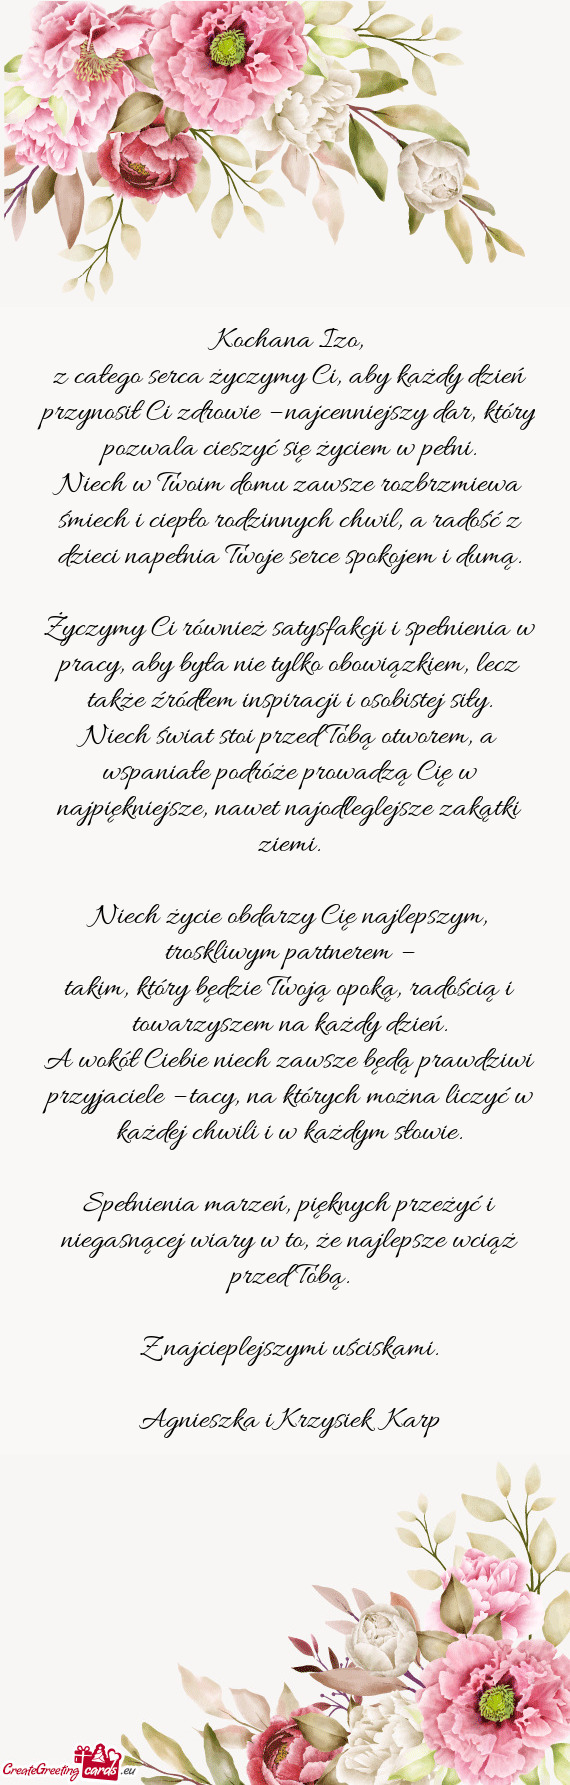 Kochana Izo,
z całego serca życzymy Ci, aby każdy dzień
przynosił Ci zdrowie –najcenniejszy dar, który
pozwala cieszyć się życiem w pełni.
Niech w Twoim domu zawsze rozbrzmiewa
śmiech i ciepło rodzinnych chwil, a radość z
dzieci napełnia Twoje serce spokojem i dumą.
Życzymy Ci również satysfakcji i spełnienia w
pracy, aby była nie tylko obowiązkiem, lecz
także źródłem inspiracji i osobistej siły.
Niech świat stoi przed Tobą otworem, a
wspaniałe podróże prowadzą Cię w
najpiękniejsze, nawet najodleglejsze zakątki
ziemi.
Niech życie obdarzy Cię najlepszym,
troskliwym partnerem –
takim, który będzie Twoją opoką, radością i
towarzyszem na każdy dzień.
A wokół Ciebie niech zawsze będą prawdziwi
przyjaciele –tacy, na których można liczyć w
każdej chwili i w każdym słowie.
Spełnienia marzeń, pięknych przeżyć i
niegasnącej wiary w to, że najlepsze wciąż
przed Tobą.
Z najcieplejszymi uściskami.
Agnieszka i Krzysiek Karp
CreateGreeting cards .eu